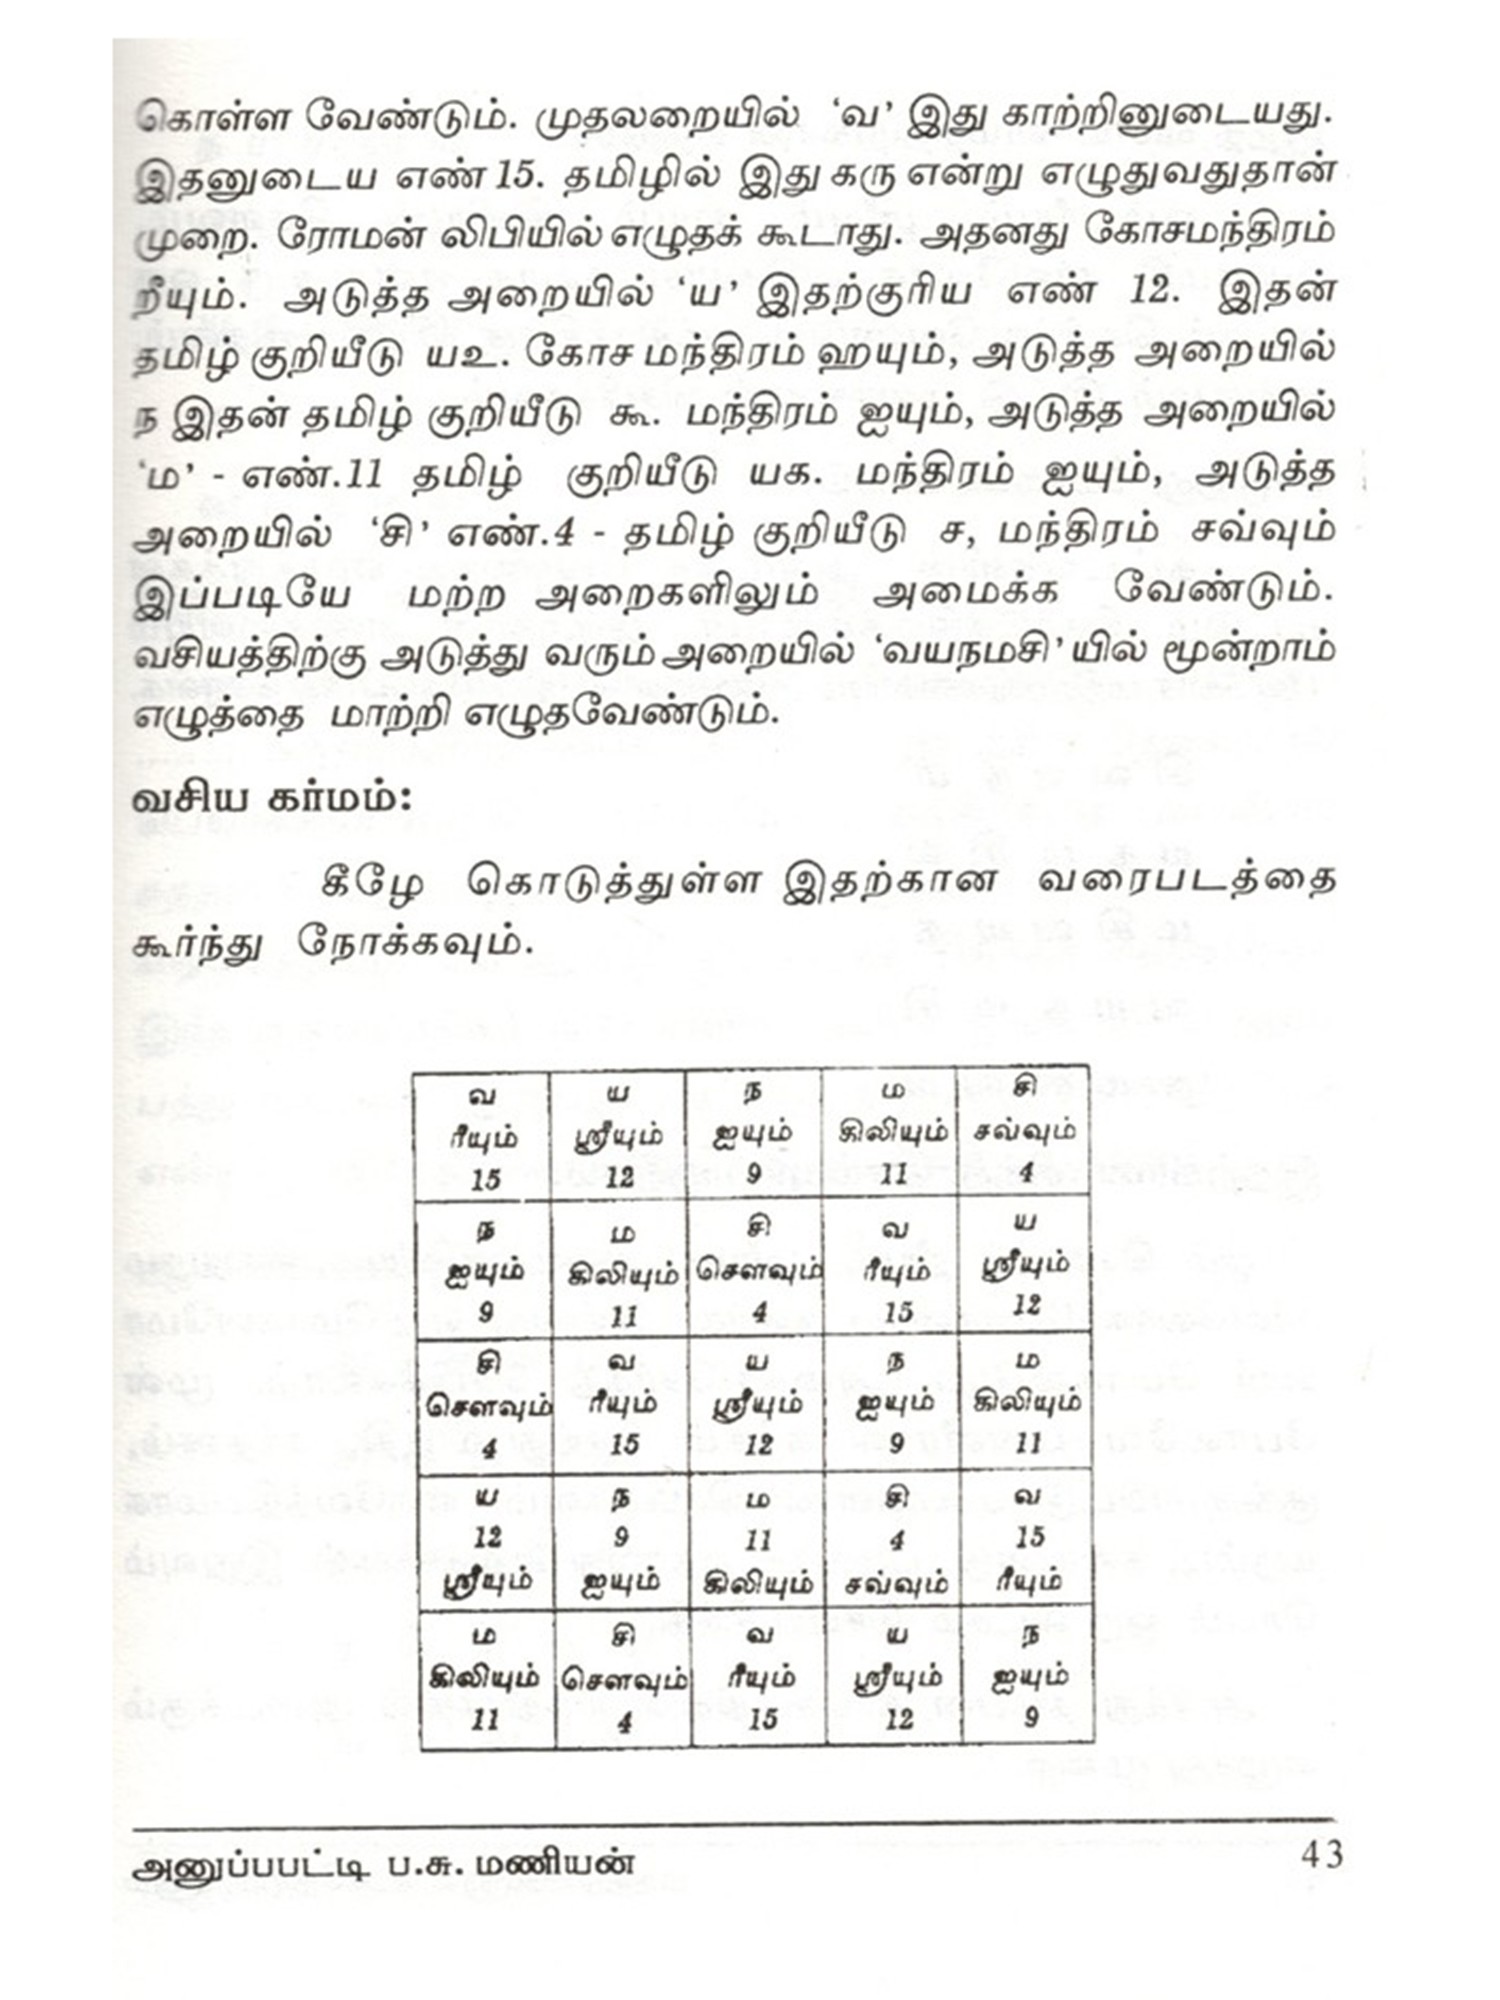 கொள்ள வேண்டும். முதலறையில் ‘வ’ இது காற்றினுடையது.
இதனுடைய எண் 15. தமிழில் இது கரு என்று எழுதுவதுதான்
முறை. ரோமன் லிபியில் எழுதக் கூடாது. அதனது கோசமந்திரம்
றீயும். அடுத்த அறையில் ‘ய’ இதற்குரிய எண் 12. இதன்
தமிழ் குறியீடு யஉ. கோச மந்திரம் ஹயும், அடுத்த அறையில்
ந இதன் தமிழ் குறியீடு கூ. மந்திரம் ஐயும், அடுத்த அறையில்
‘ம’ - எண்.11 தமிழ் குறியீடு யக. மந்திரம் ஐயும், அடுத்த
அறையில் ‘சி’ எண்.4 - தமிழ் குறியீடு ச, மந்திரம் சவ்வும்
இப்படியே மற்ற அறைகளிலும் அமைக்க வேண்டும்.
வசியத்திற்கு அடுத்து வரும் அறையில் ‘வயநமசி’யில் மூன்றாம்
எழுத்தை மாற்றி எழுதவேண்டும்.
வசிய கர்மம்:
கீழே கொடுத்துள்ள இதற்கான வரைபடத்தை
கூர்ந்து நோக்கவும்.
வ ய ந ம சி
ரீயும் ஸ்ரீயும் ஐயும் கிலியும் சவ்வும்
15 12 9 11 4
ந ம சி வ ய
ஐயும் கிலியும் சௌவும் ரீயும் ஸ்ரீயும்
9 11 4 15 12
சி வ ய ந ம
சௌவும் ரீயும் ஸ்ரீயும் ஐயும் கிலியும்
4 15 12 9 11
ய ந ம சி வ
12 9 11 4 15
ஸ்ரீயும் ஐயும் கிலியும் சவ்வும் ரீயும்
ம சி வ ய ந
கிலியும் சௌவும் ரீயும் ஸ்ரீயும் ஐயும்
11 4 15 12 9
அனுப்பபட்டி ப.சு. மணியன் 43